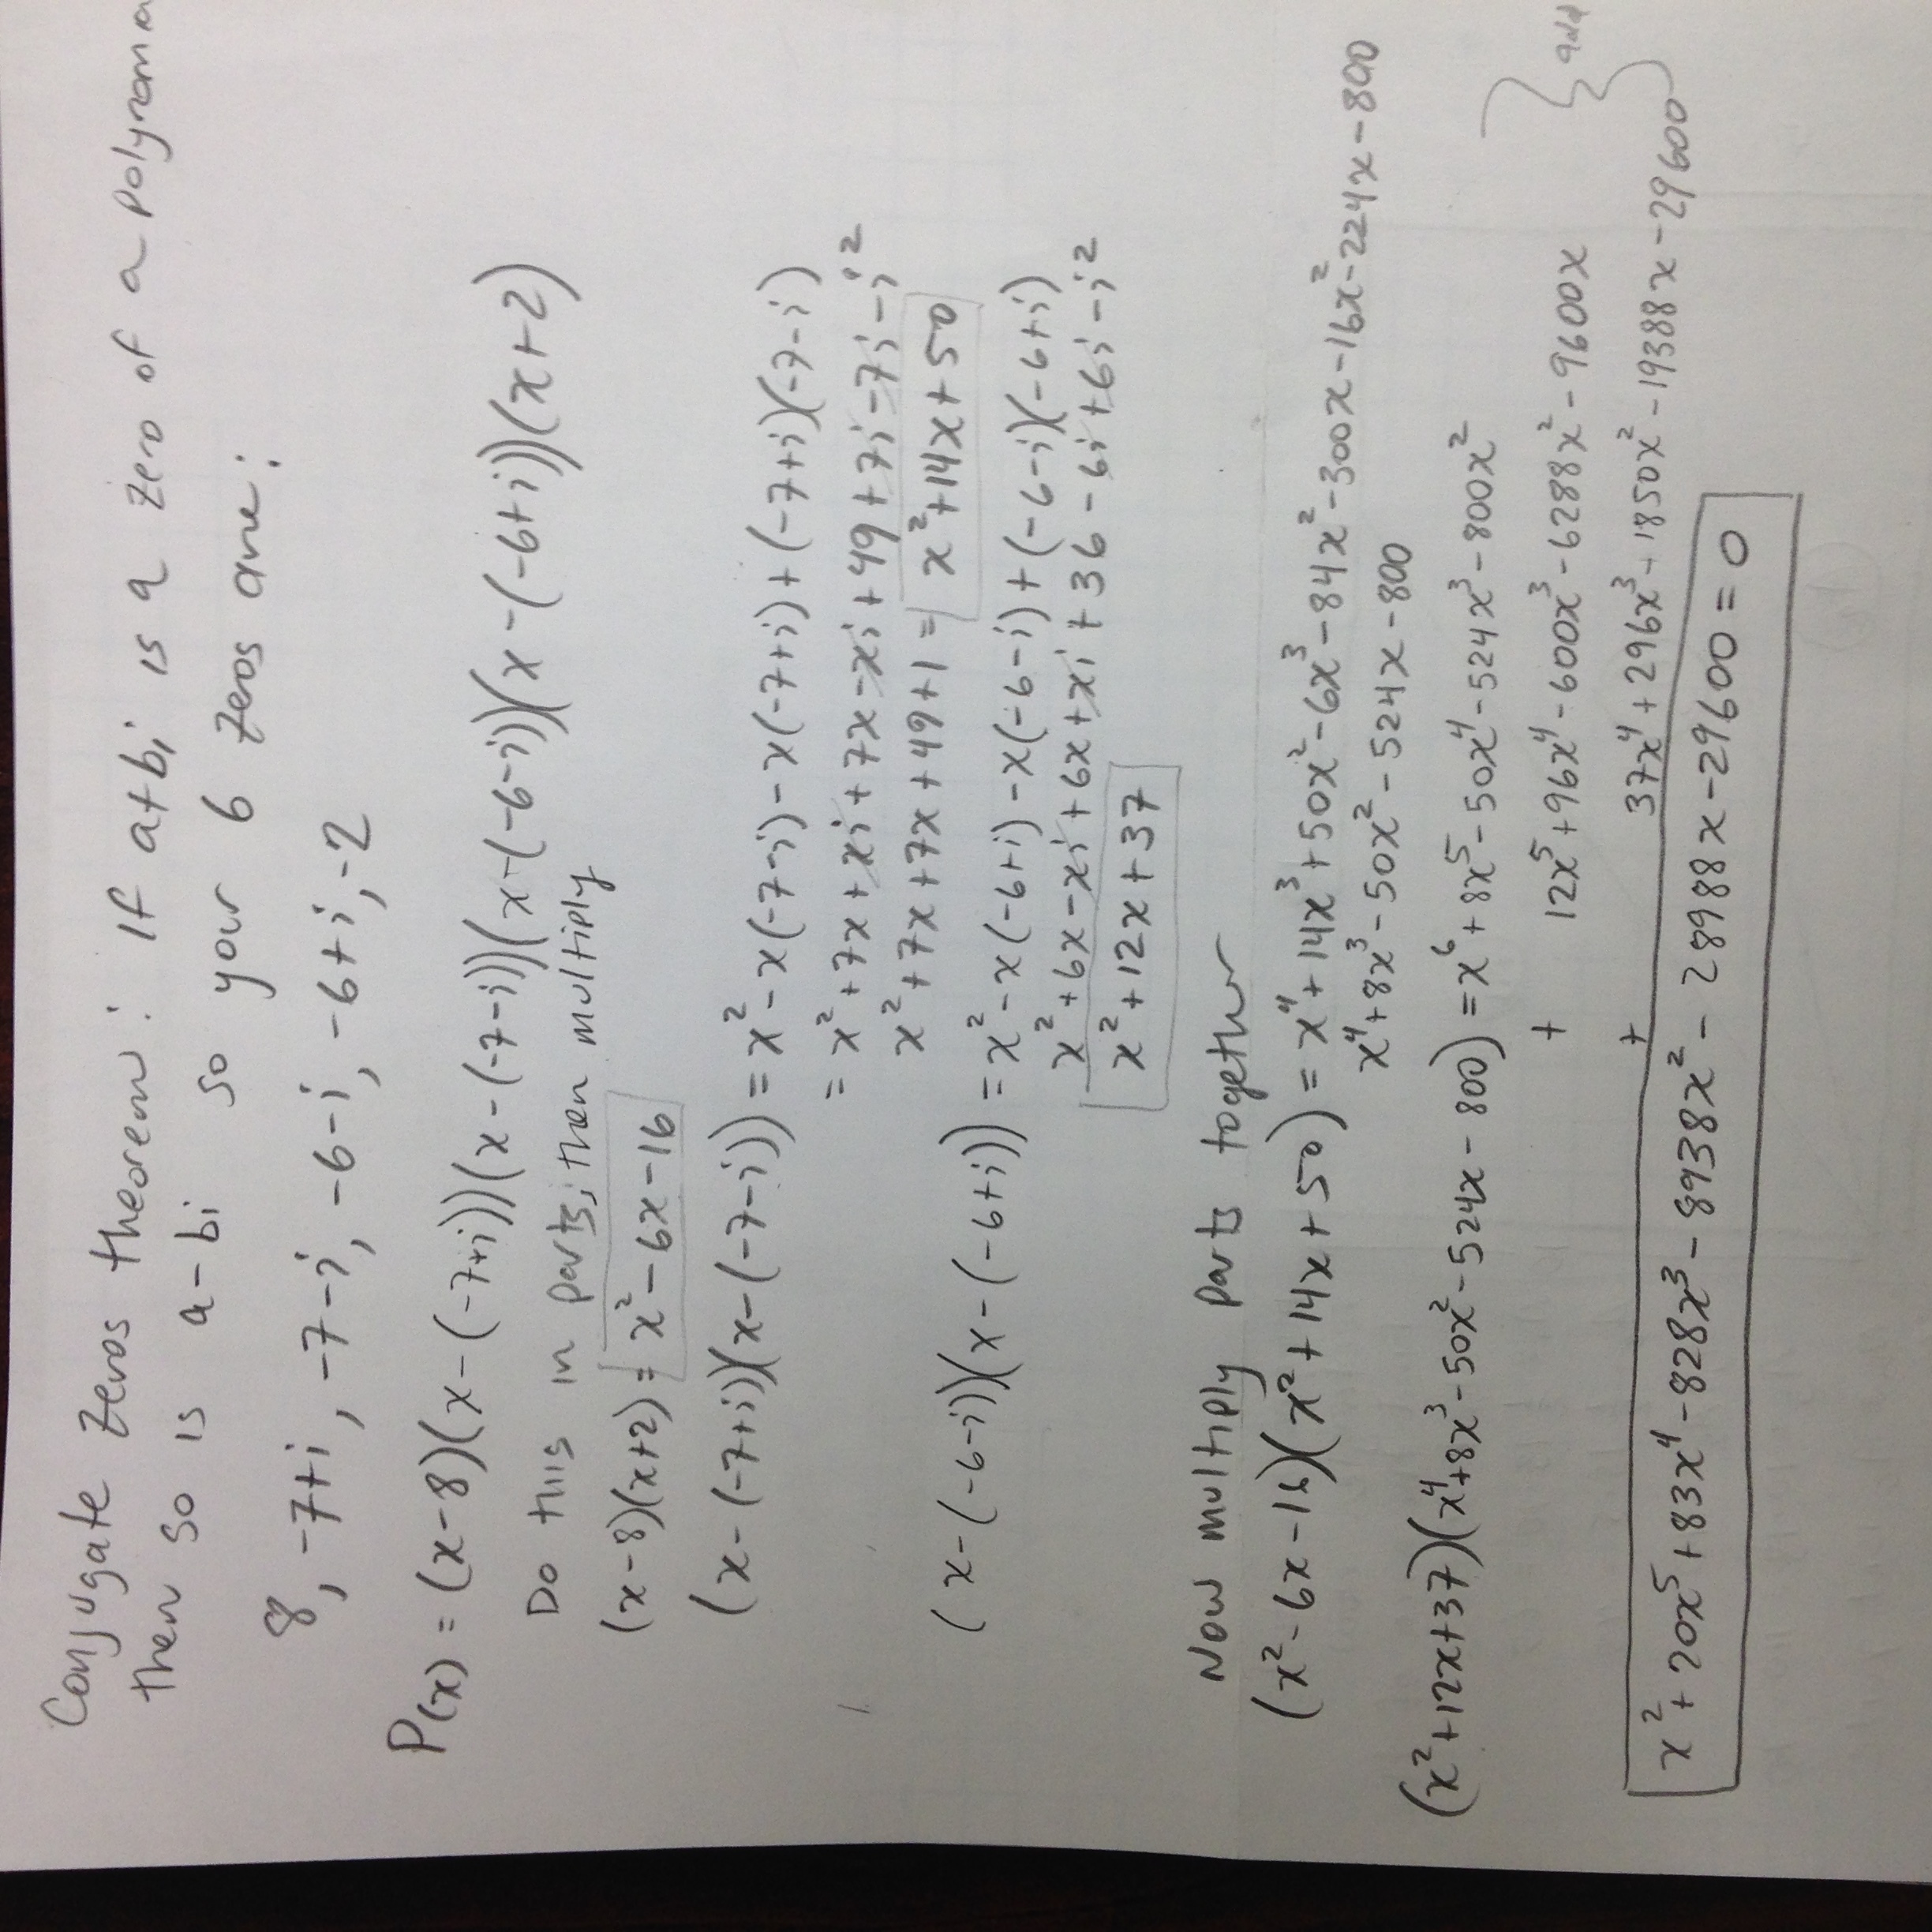 Conjugate zeros theorem: If a+bi is a zero of a
then so is a-bi so your 6 zeros are:
8, -7+i, -7-i, -6-i, -6+i, -2
P(x) = (x-8)(x-(-7+i))(x-(-7-i))(x-(-6-i))(x-(-6+i))(x+2)
Do this in parts, then multiply
(x-8)(x+2) = x²-6x-16
(x-(-7+i))(x-(-7-i)) = x²-x(-7-i)-x(-7+i)+(-7+i)(-7-i)
= x²+7x+xi+7x-xi+49+7i-7i-i²
x²+7x+7x+49+1 = x²+14x+50
(x-(-6-i))(x-(-6+i)) = x²-x(-6+i)-x(-6-i)+(-6-i)(-6+i)
x²+6x-xi+6x+xi+36-6i+6i-i²
x²+12x+37
Now multiply parts together
(x²-6x-16)(x²+14x+50) = x⁴+14x³+50x²-6x³-84x²-300x-16x²-224x-800
x⁴+8x³-50x²-524x-800
(x²+12x+37)(x⁴+8x³-50x²-524x-800) = x⁶+8x⁵-50x⁴-524x³-800x²
+ 12x⁵+96x⁴-600x³-6288x²-9600x
+ 37x⁴+296x³-1850x²-19388x-29600 } add
x²+20x⁵+83x⁴-828x³-8938x²-28988x-29600=0